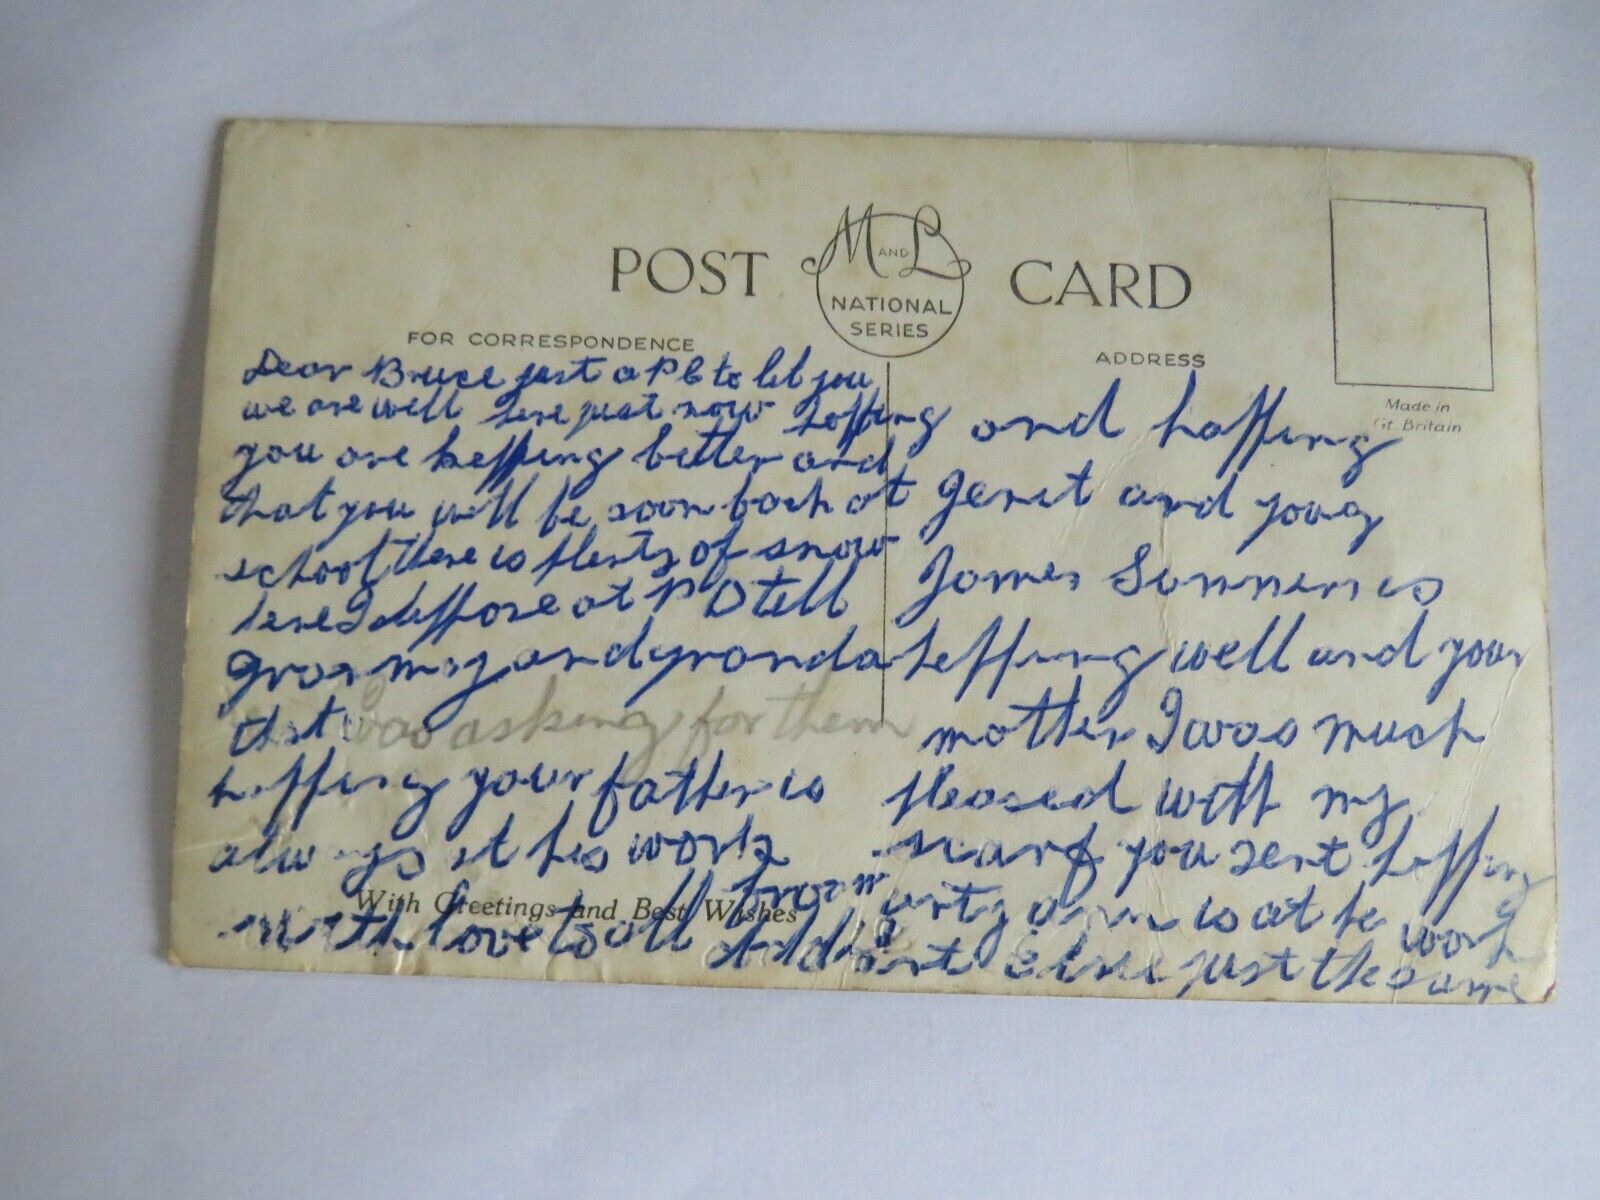 POST CARD
M AND L
NATIONAL
SERIES
FOR CORRESPONDENCE
ADDRESS
Made in
Gt. Britain
Dear Bruce just a P C to let you
we are well here just now hoffing
you are keffing better and
that you will be soon back at
school there is plenty of snow
here I at P D tell
and granda
that I was asking for them
hoffing your father is
always at his work
With Greetings and Best Wishes
with love to all from
and hoffing
and
James is
keffing well and your
mother I was much
pleased with my
scarf you sent hoffing
ann is at he work
just the same